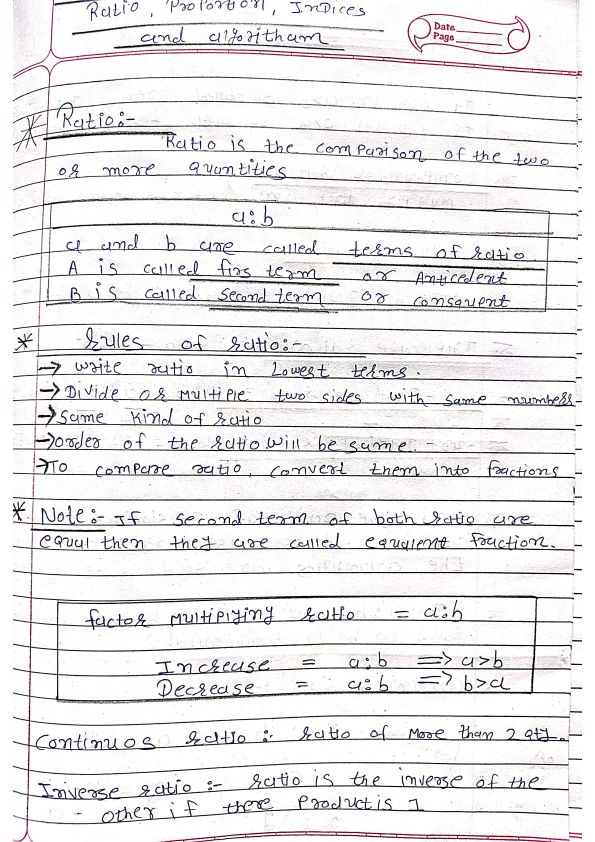 Ratio, Proportion, Indices
and algoritham
Date
Page
Ratio:-
Ratio is the comparison of the two
or more quantities
a:b
a and b are called terms of ratio.
A is called firs term or Anticedent
B is called second term or consquent
* Rules of ratio:-
→ write ratio in Lowest terms.
→ Divide or multiple two sides with same numbers.
→ Same kind of ratio
→ order of the ratio will be same.
→ To compare ratio, convert them into fractions
* Note:- If second term of both ratio are
equal then they are called equalent fraction.
factor multiplying ratio = a:b
Increase = a:b => a>b
Decrease = a:b => b>a
Continuos ratio :- ratio of more than 2 qty.
Inverse ratio :- ratio is the inverse of the
- other if there Product is 1